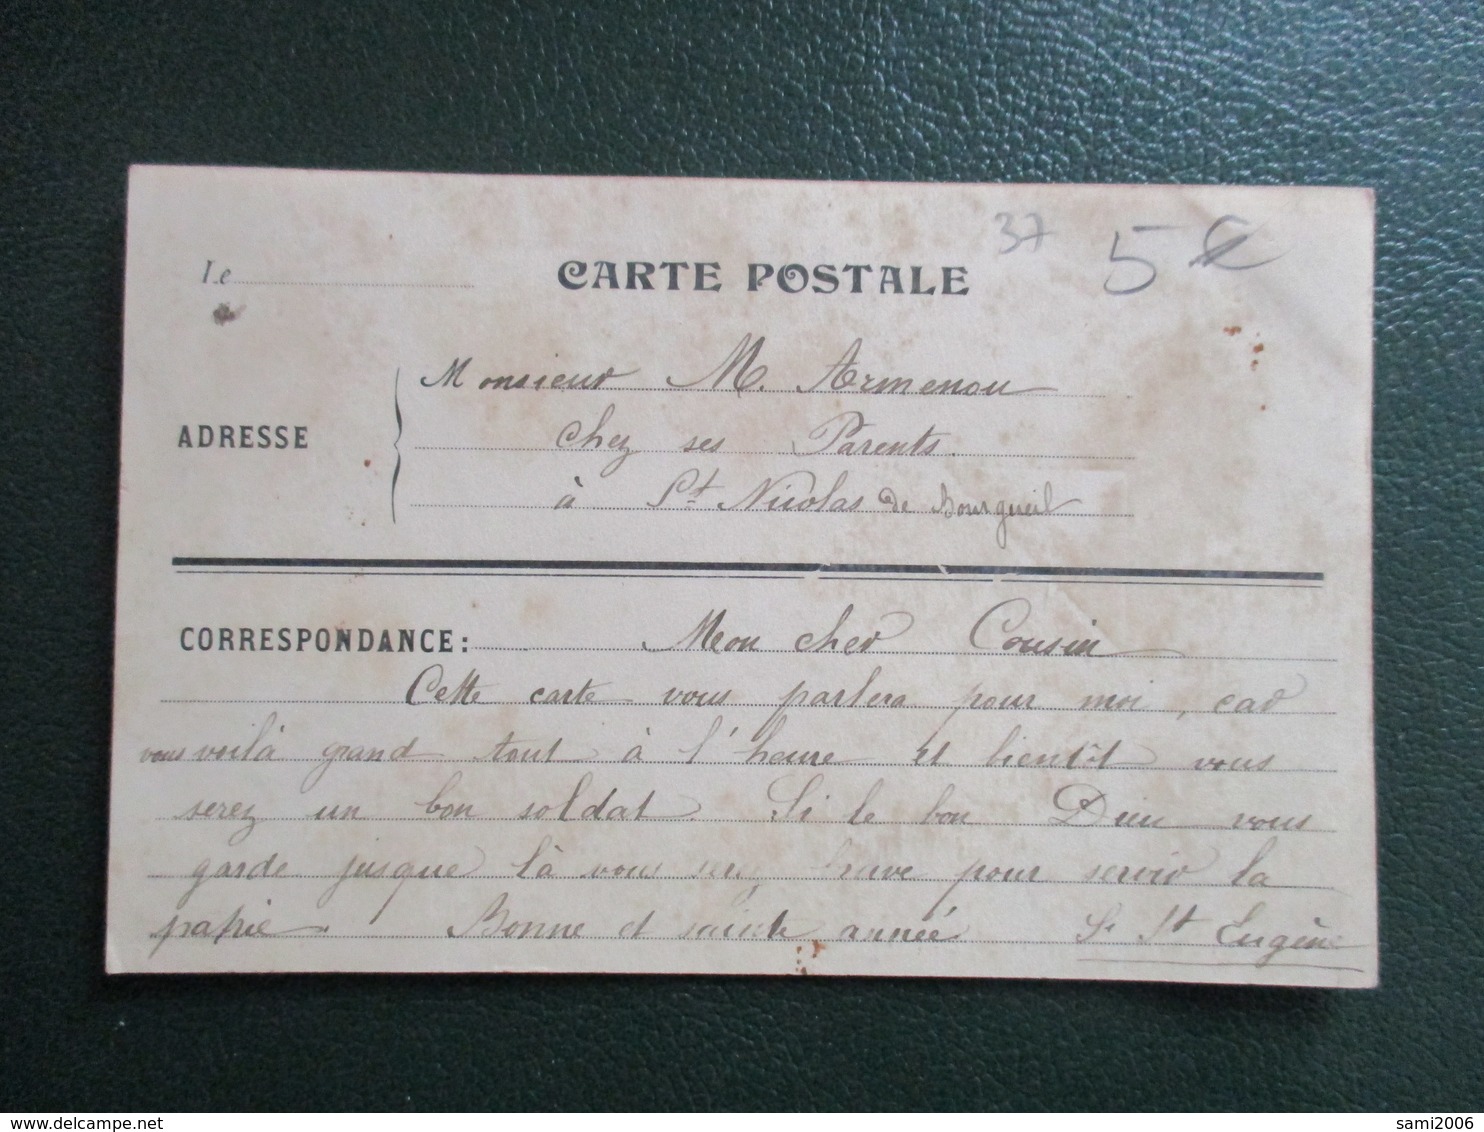 37 5 €
Le
CARTE POSTALE
Monsieur M. Armenou
ADRESSE
chez ses Parents.
à St Nicolas de Bourgueil
CORRESPONDANCE: Mon cher Cousin
Cette carte vous parlera pour moi, car
vous voilà grand tout à l'heure et bientôt vous
serez un bon soldat. Si le bon Dieu vous
garde jusque là vous serez brave pour servir la
patrie. Bonne et sainte année Sr St Eugène
sami2006